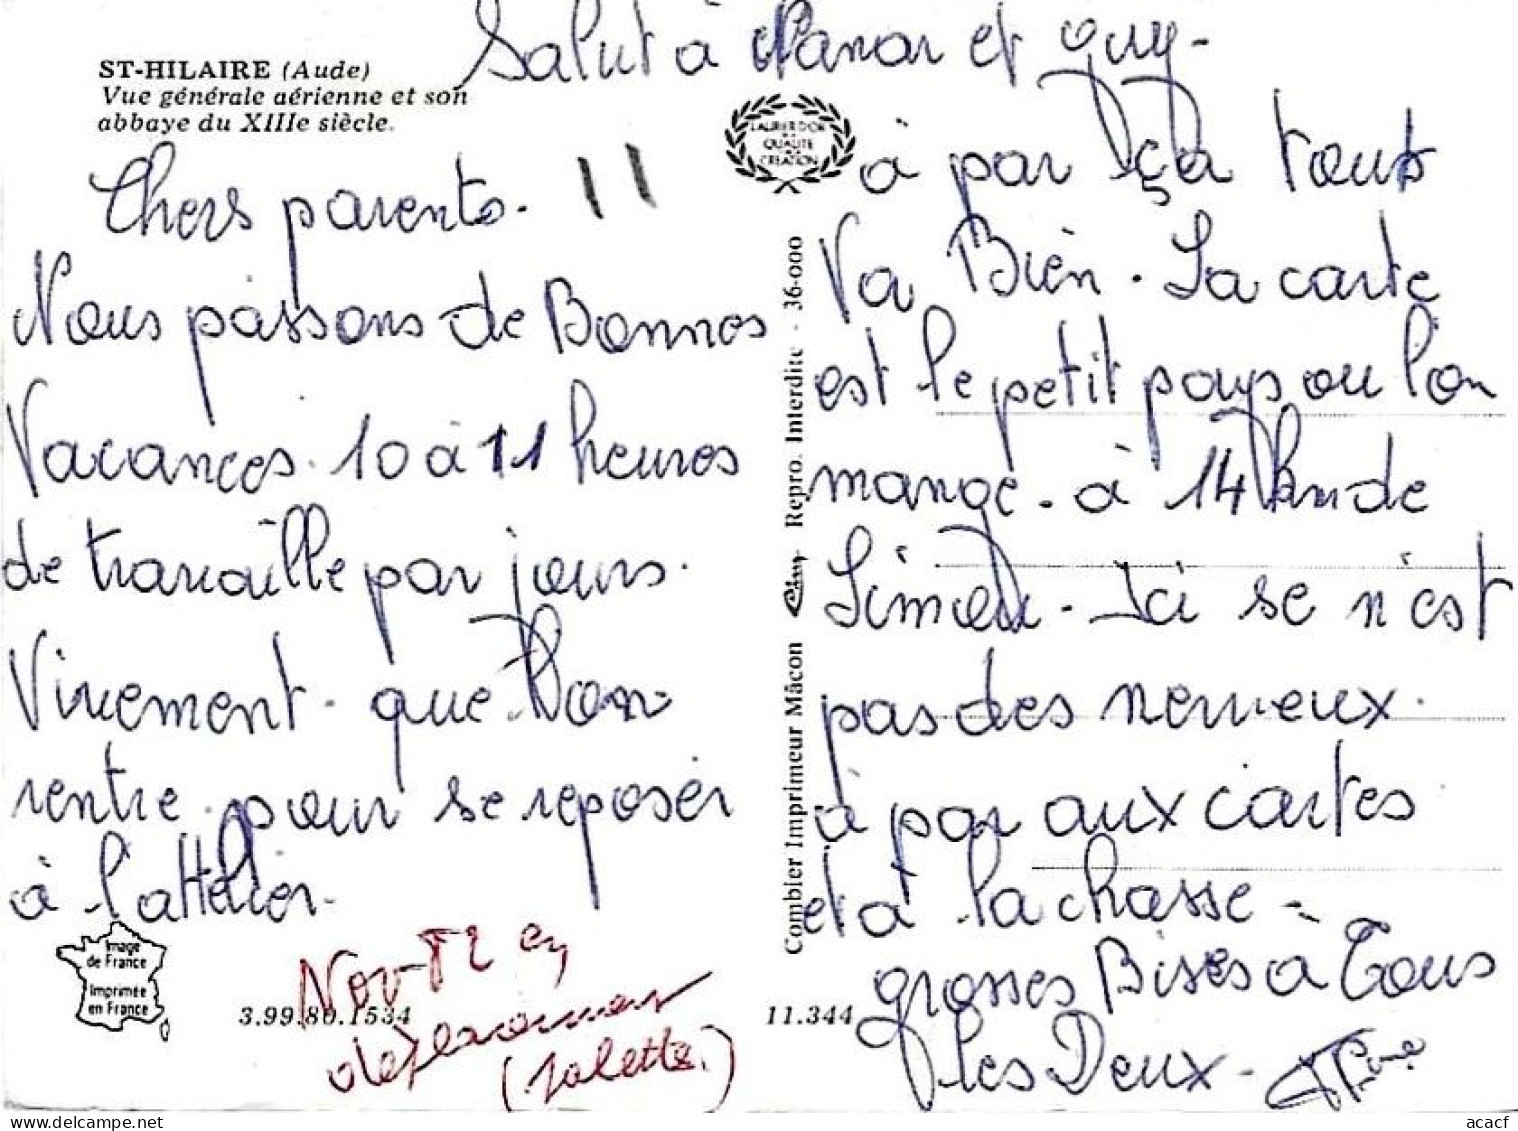 Salut à Nanar et guy-
ST-HILAIRE (Aude)
Vue générale aérienne et son
abbaye du XIIIe siècle.
LAURIER D'OR
DE LA
QUALITE
DE LA
CREATION
Chers parents. 11
Nous passons de Bonnes
Vacances. 10 à 11 heures
de travaille par jours.
Vivement que l'on
rentre pour se reposer
à l'attelier.
Image
de France
Imprimée
en France
3.99.80.1534
11.344
Nov-82 en
déplacement
Combier Imprimeur Mâcon Repro. Interdite - 36-000
à par ça tout
Va Bien. La carte
est le petit pays ou l'on
mange - à 14 km de
Limou - Ici se n'est
pas des nerveux.
à par aux cartes
et à la chasse -
grosses Bises à Tous
les Deux -
acacf